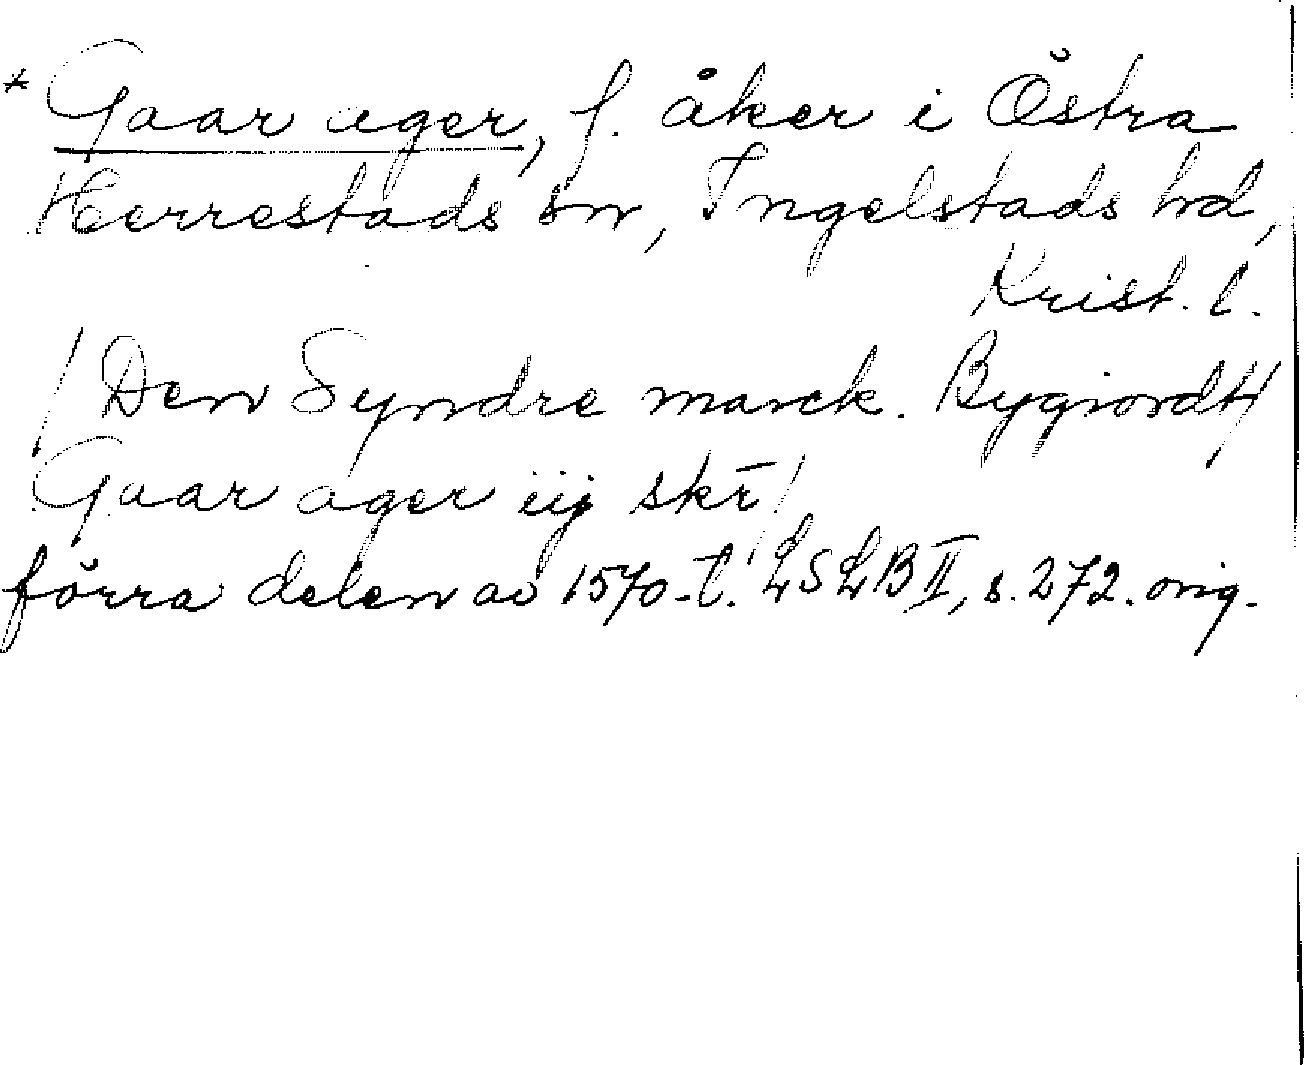 * Gaar ager, f. åker i Östra
Herrestads sn, Ingelstads hd,
Krist. l.
/ Den Syndre marck. Bygiordt/
Gaar ager iij skr̄ /
förra delen av 1570-t. LSLB II, s. 272. orig.